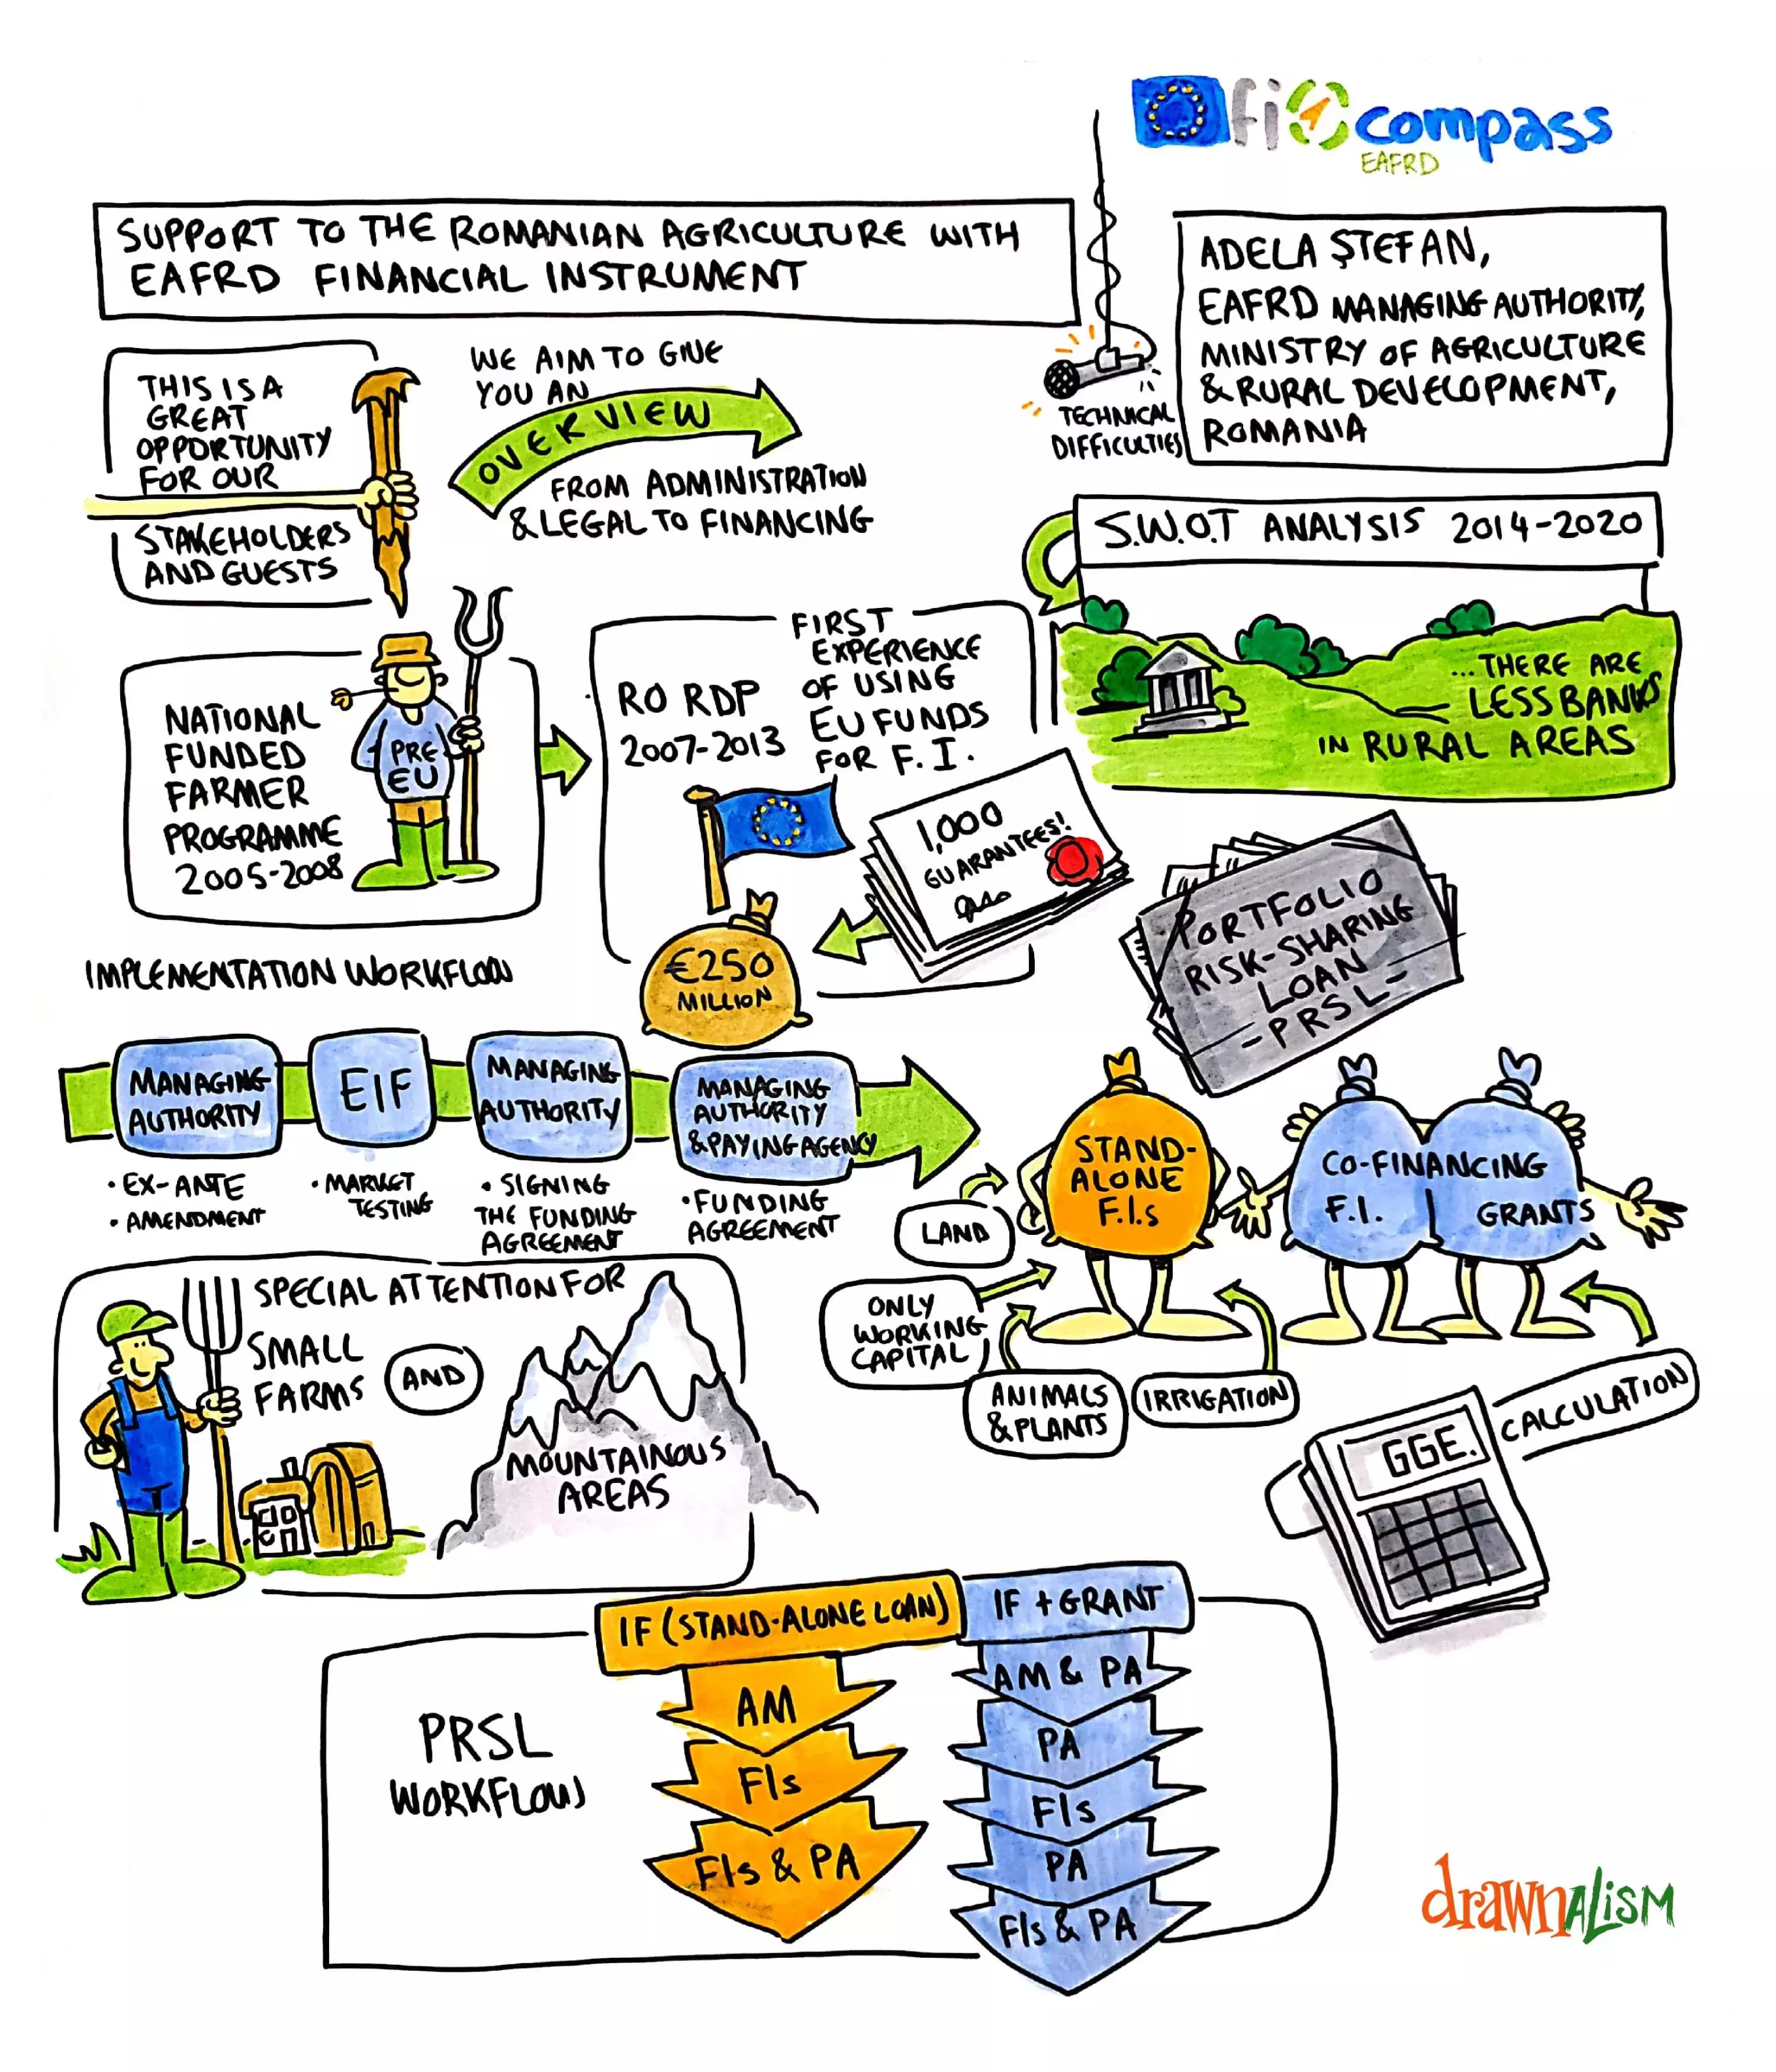 fi compass
EAFRD
SUPPORT TO THE ROMANIAN AGRICULTURE WITH
EAFRD FINANCIAL INSTRUMENT
ADELA ŞTEFAN,
EAFRD MANAGING AUTHORITY,
MINISTRY OF AGRICULTURE
& RURAL DEVELOPMENT,
ROMANIA
TECHNICAL
DIFFICULTIES
THIS IS A
GREAT
OPPORTUNITY
FOR OUR
STAKEHOLDERS
AND GUESTS
WE AIM TO GIVE
YOU AN
OVERVIEW
FROM ADMINISTRATION
& LEGAL TO FINANCING
S.W.O.T ANALYSIS 2014-2020
...THERE ARE
LESS BANKS
IN RURAL AREAS
NATIONAL
FUNDED
FARMER
PROGRAMME
2005-2008
PRE
EU
RO RDP
2007-2013
FIRST
EXPERIENCE
OF USING
EU FUNDS
FOR F.I.
1,000
GUARANTEES!
€250
MILLION
PORTFOLIO
RISK-SHARING
LOAN
-PRSL-
IMPLEMENTATION WORKFLOW
MANAGING
AUTHORITY
• EX-ANTE
• AMENDMENT
EIF
• MARKET
TESTING
MANAGING
AUTHORITY
• SIGNING
THE FUNDING
AGREEMENT
MANAGING
AUTHORITY
& PAYING AGENCY
• FUNDING
AGREEMENT
STAND-
ALONE
F.I.s
CO-FINANCING
F.I. | GRANTS
LAND
ONLY
WORKING
CAPITAL
ANIMALS
& PLANTS
IRRIGATION
GGE.
CALCULATION
SPECIAL ATTENTION FOR
SMALL
FARMS
AND
MOUNTAINOUS
AREAS
PRSL
WORKFLOW
IF (STAND-ALONE LOAN)
AM
FIs
FIs & PA
IF + GRANT
AM & PA
PA
FIs
PA
FIs & PA
drawnalism